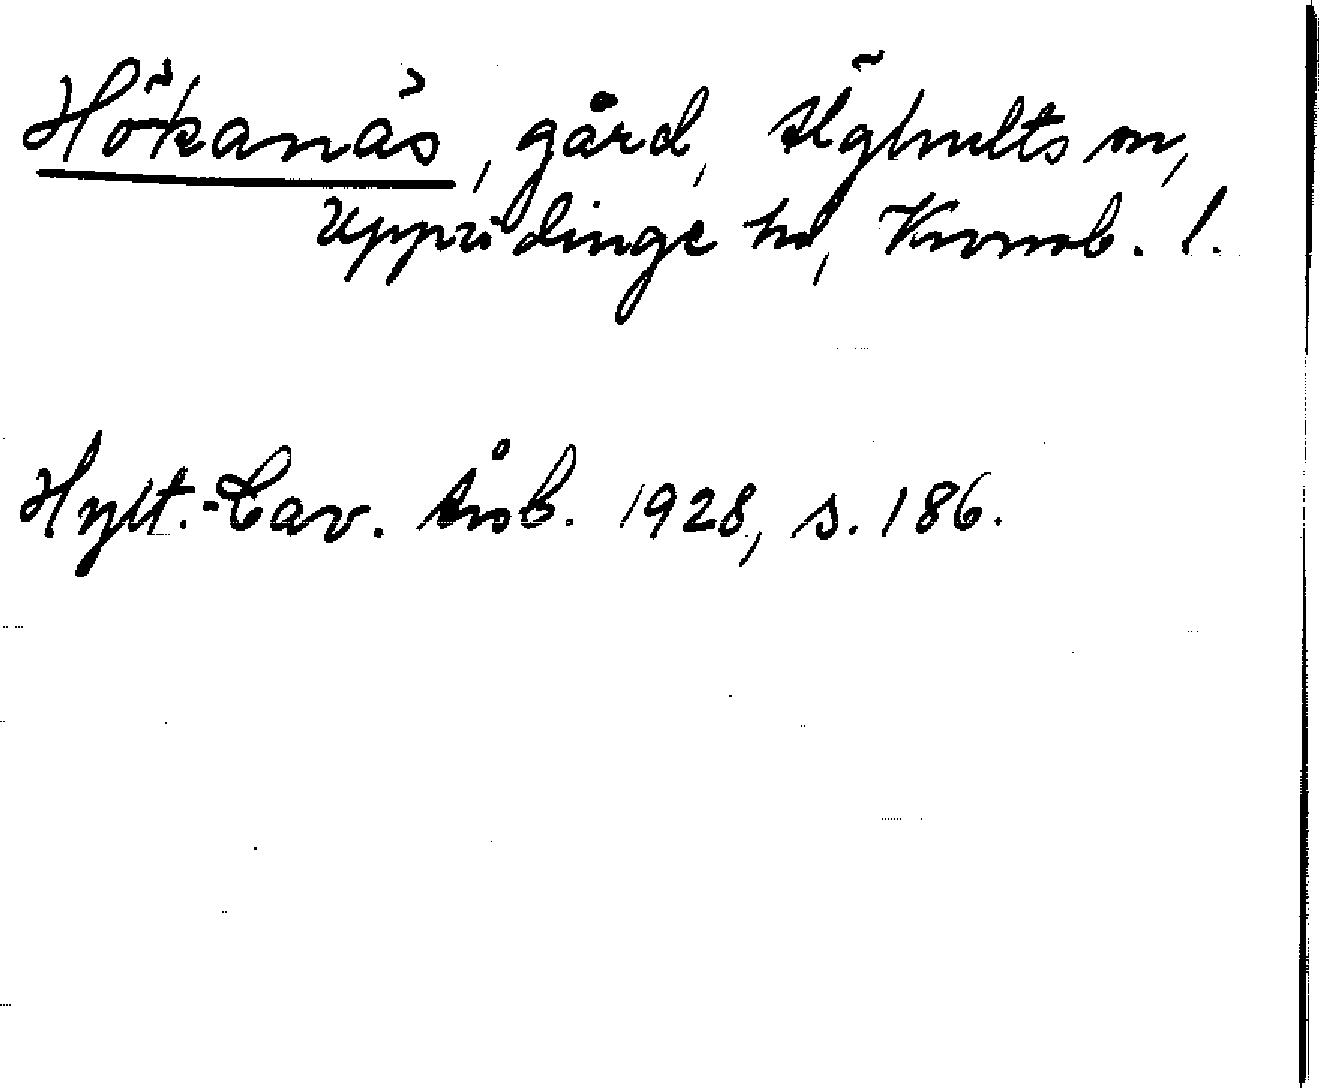 Hökanäs, gård, Älghults sn,
Uppvidinge hd, Kronob. l.
Hylt.-Cav. Årsb. 1928, s. 186.